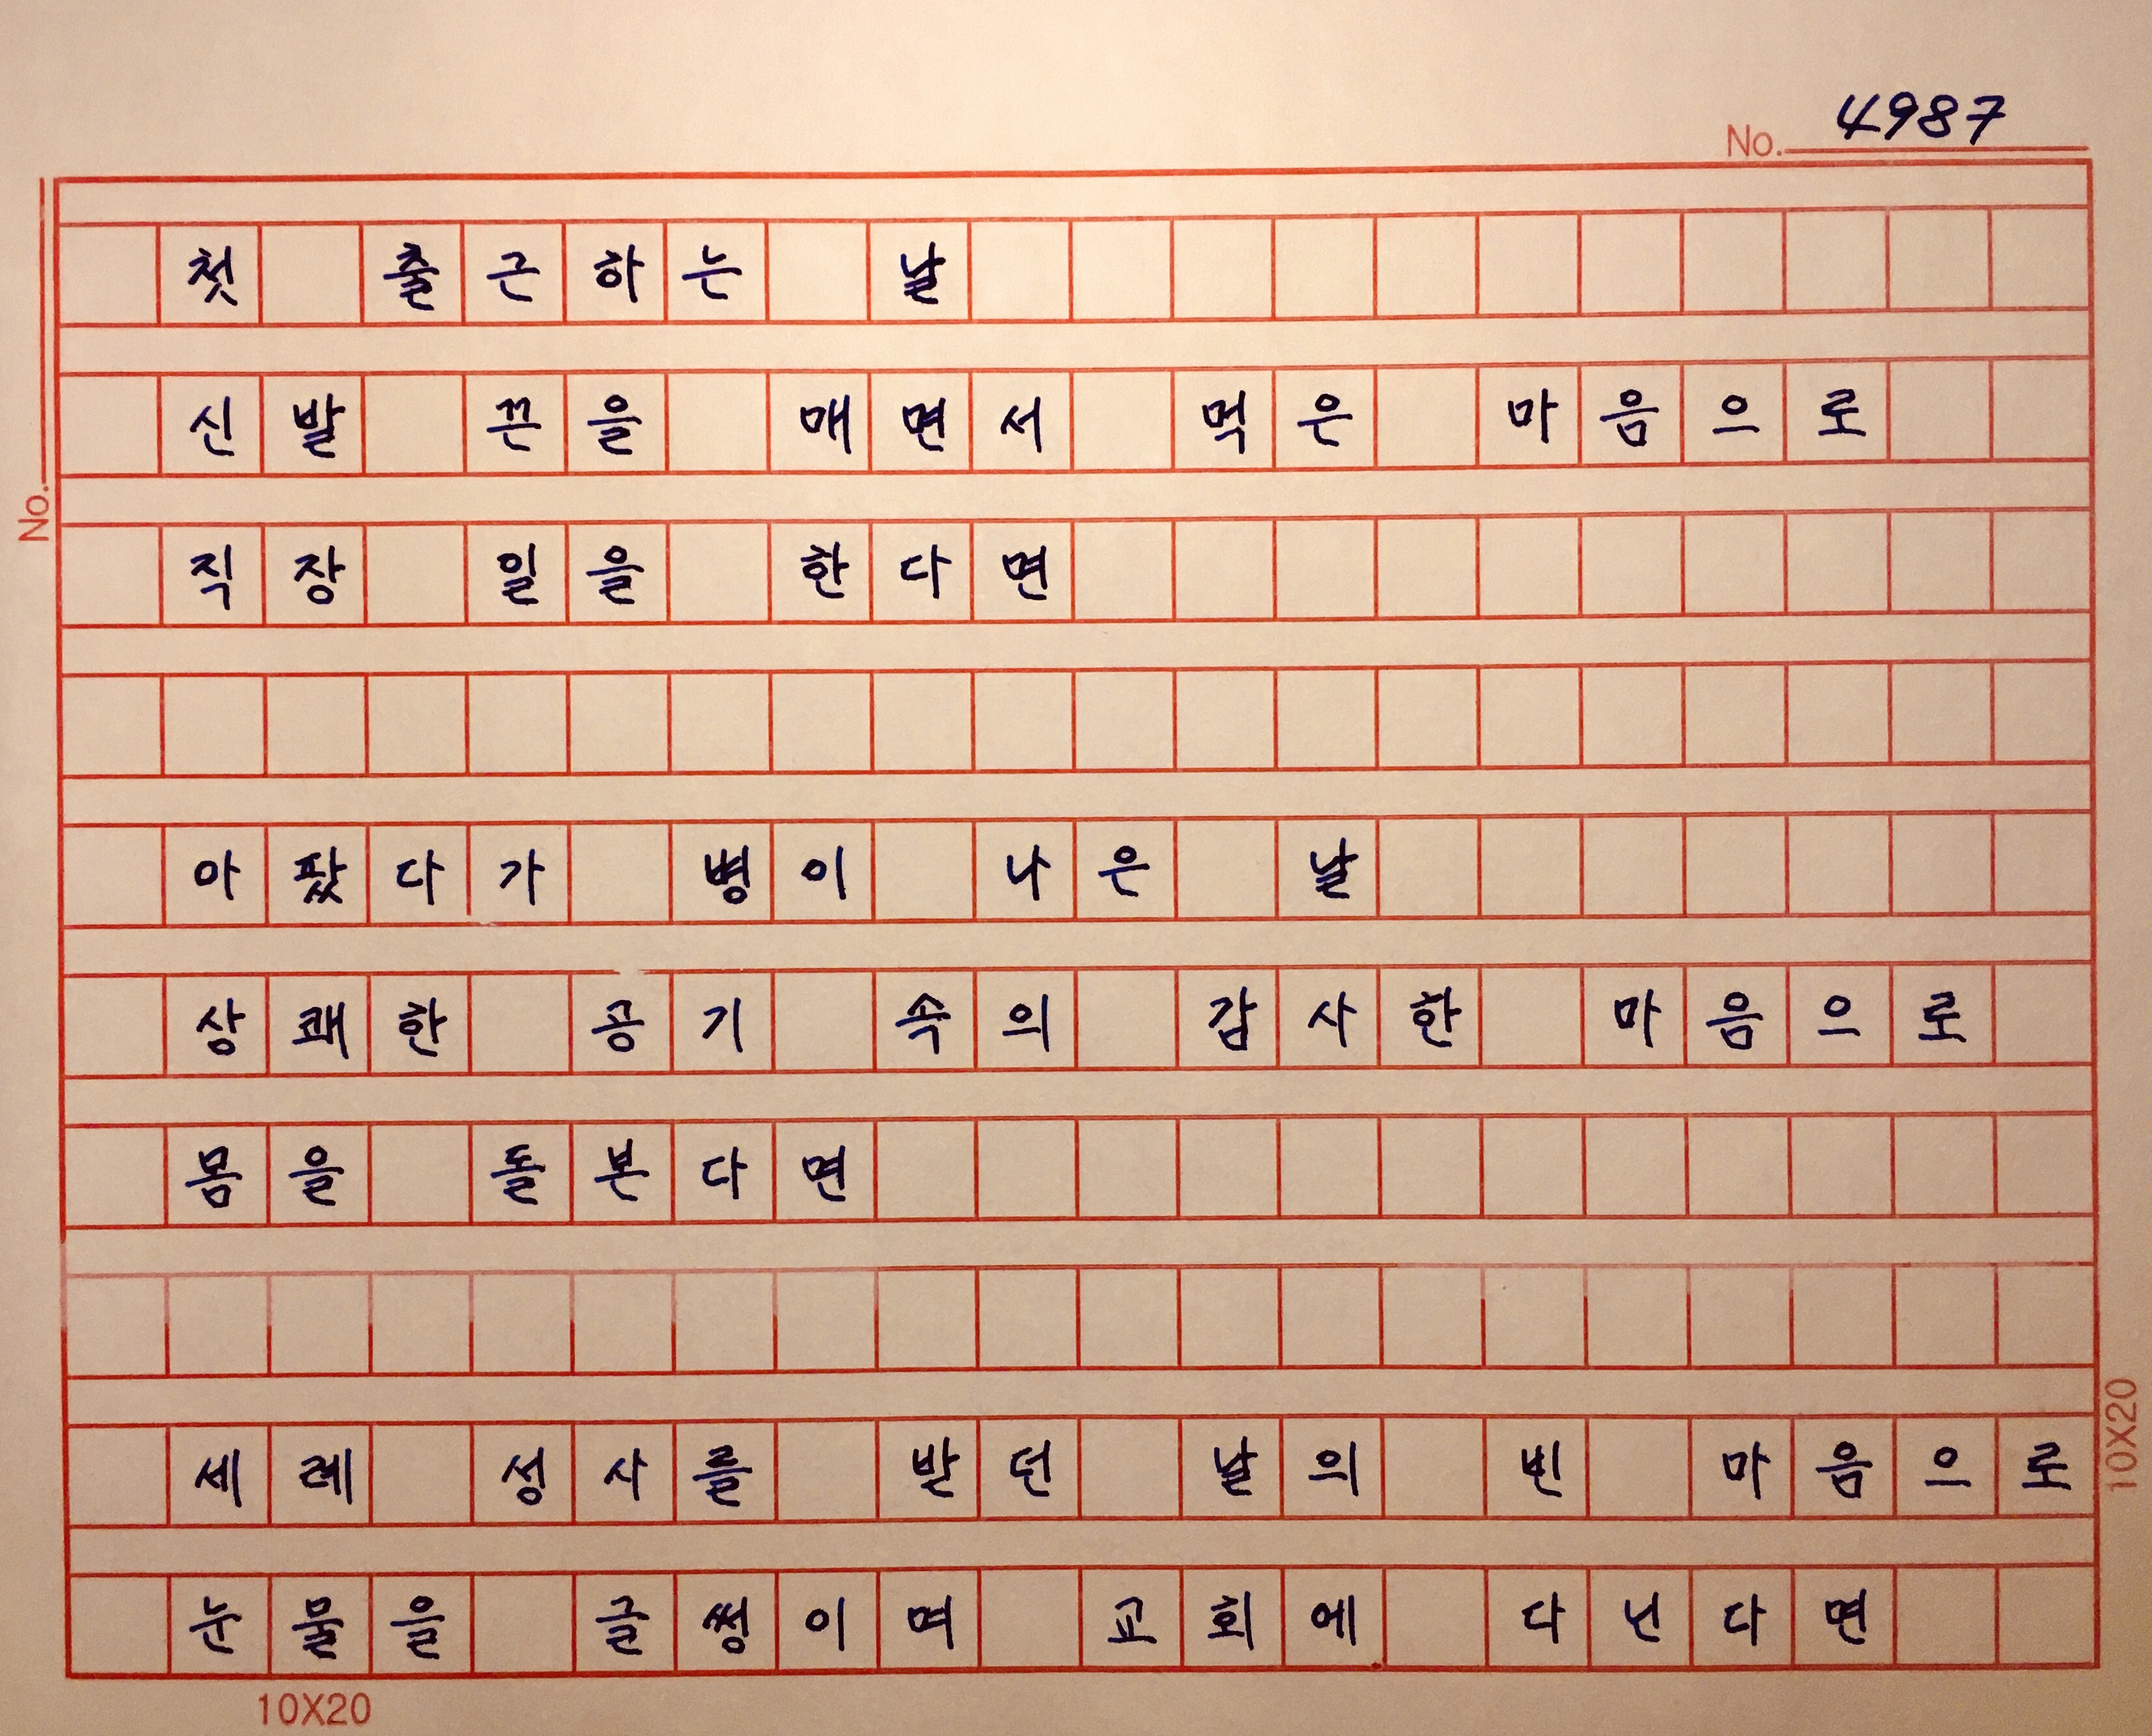 No. 4987
첫 출근하는 날
신발 끈을 매면서 먹은 마음으로
직장 일을 한다면
아팠다가 병이 나은 날
상쾌한 공기 속의 감사한 마음으로
몸을 돌본다면
세례 성사를 받던 날의 빈 마음으로
눈물을 글썽이며 교회에 다닌다면
No.
10X20
10X20